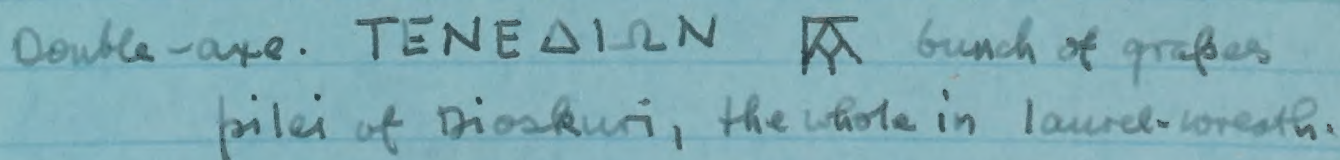 Double-axe. ΤΕΝΕΔΙΩΝ bunch of grapes
pilei of Dioskuri, the whole in laurel-wreath.